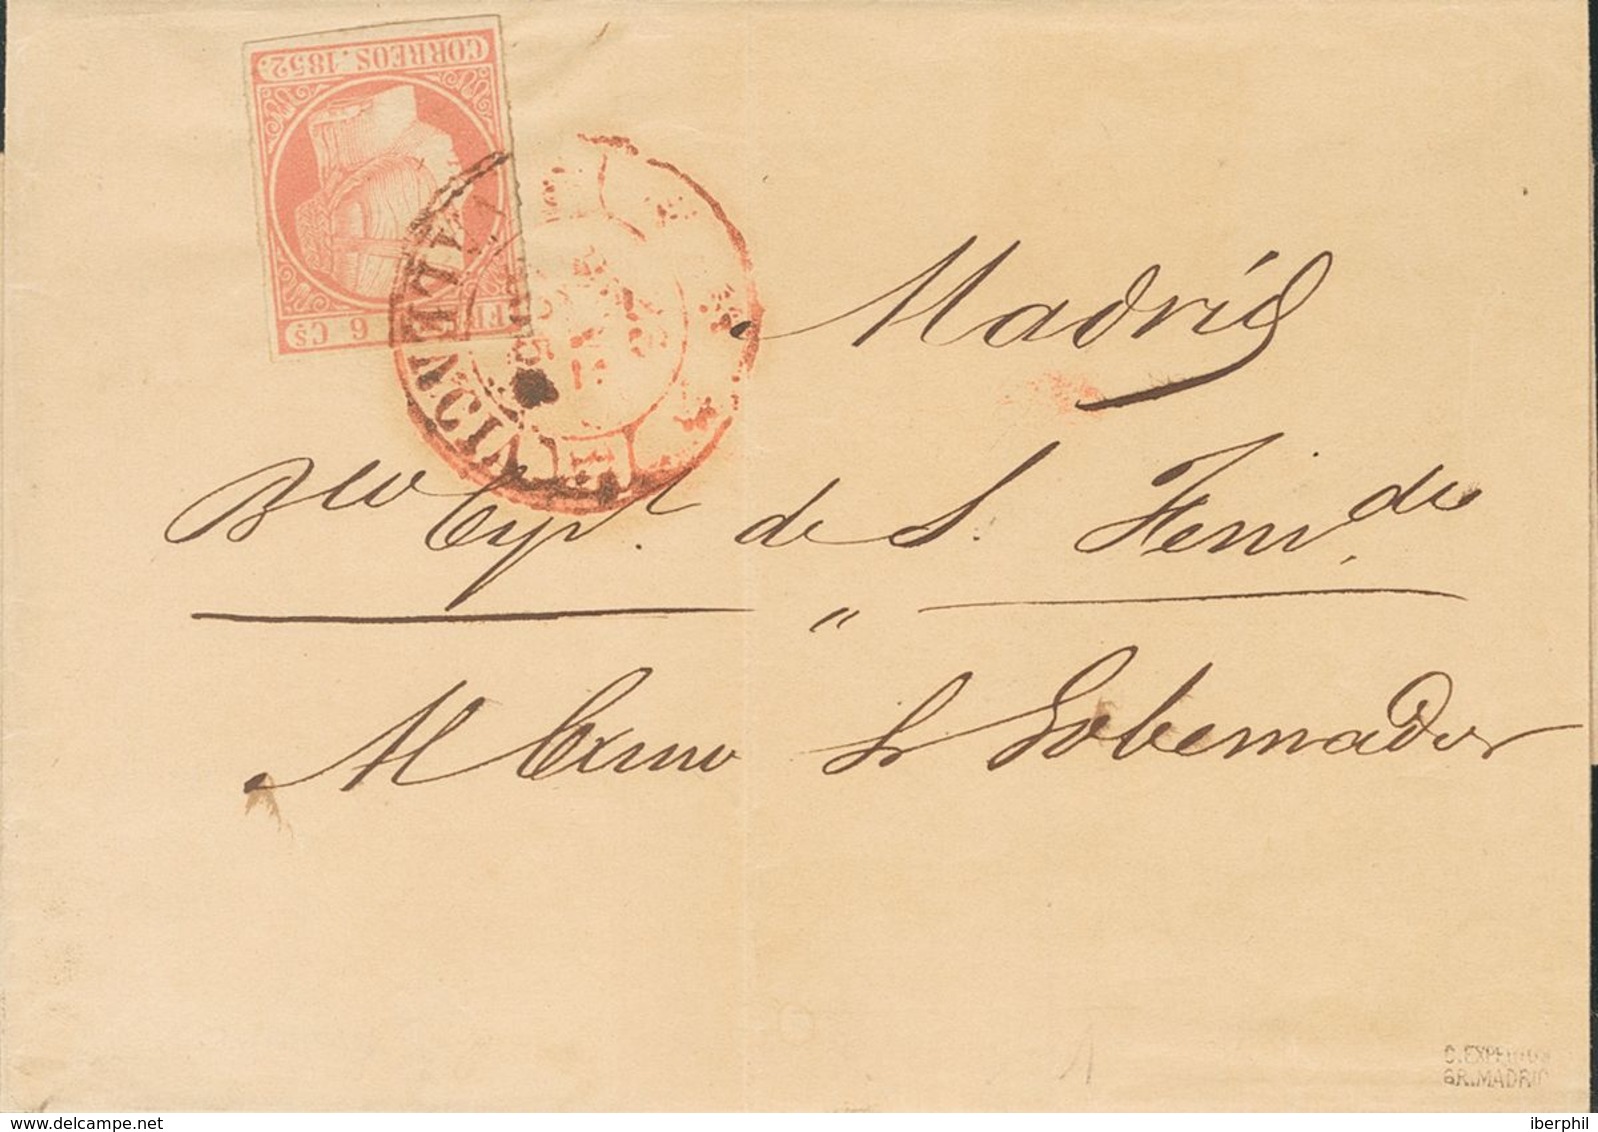 CORREOS. 1852.
6 Cs
VALENCIA
Madrid
Bco Esp.l de S. Fern.do
Al Exmo Sr Gobernador
C. EXPERTOS
GR. MADRID
delcampe.net
iberphil